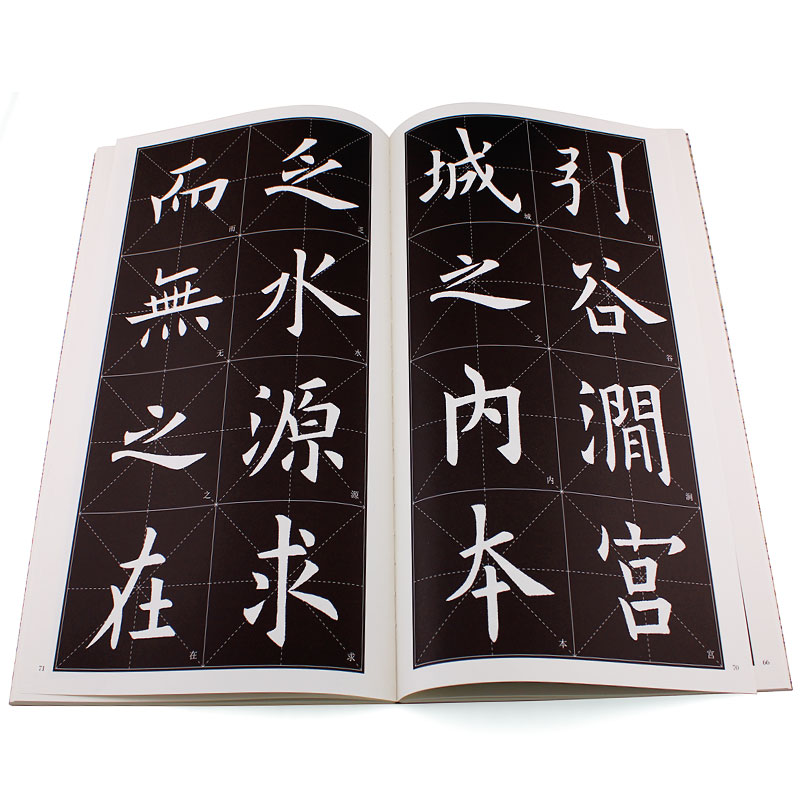 引谷澗宮
引
谷
涧
宫
城之内本
城
之
内
本
70
66
乏水源求
乏
水
源
求
而無之在
而
无
之
在
71